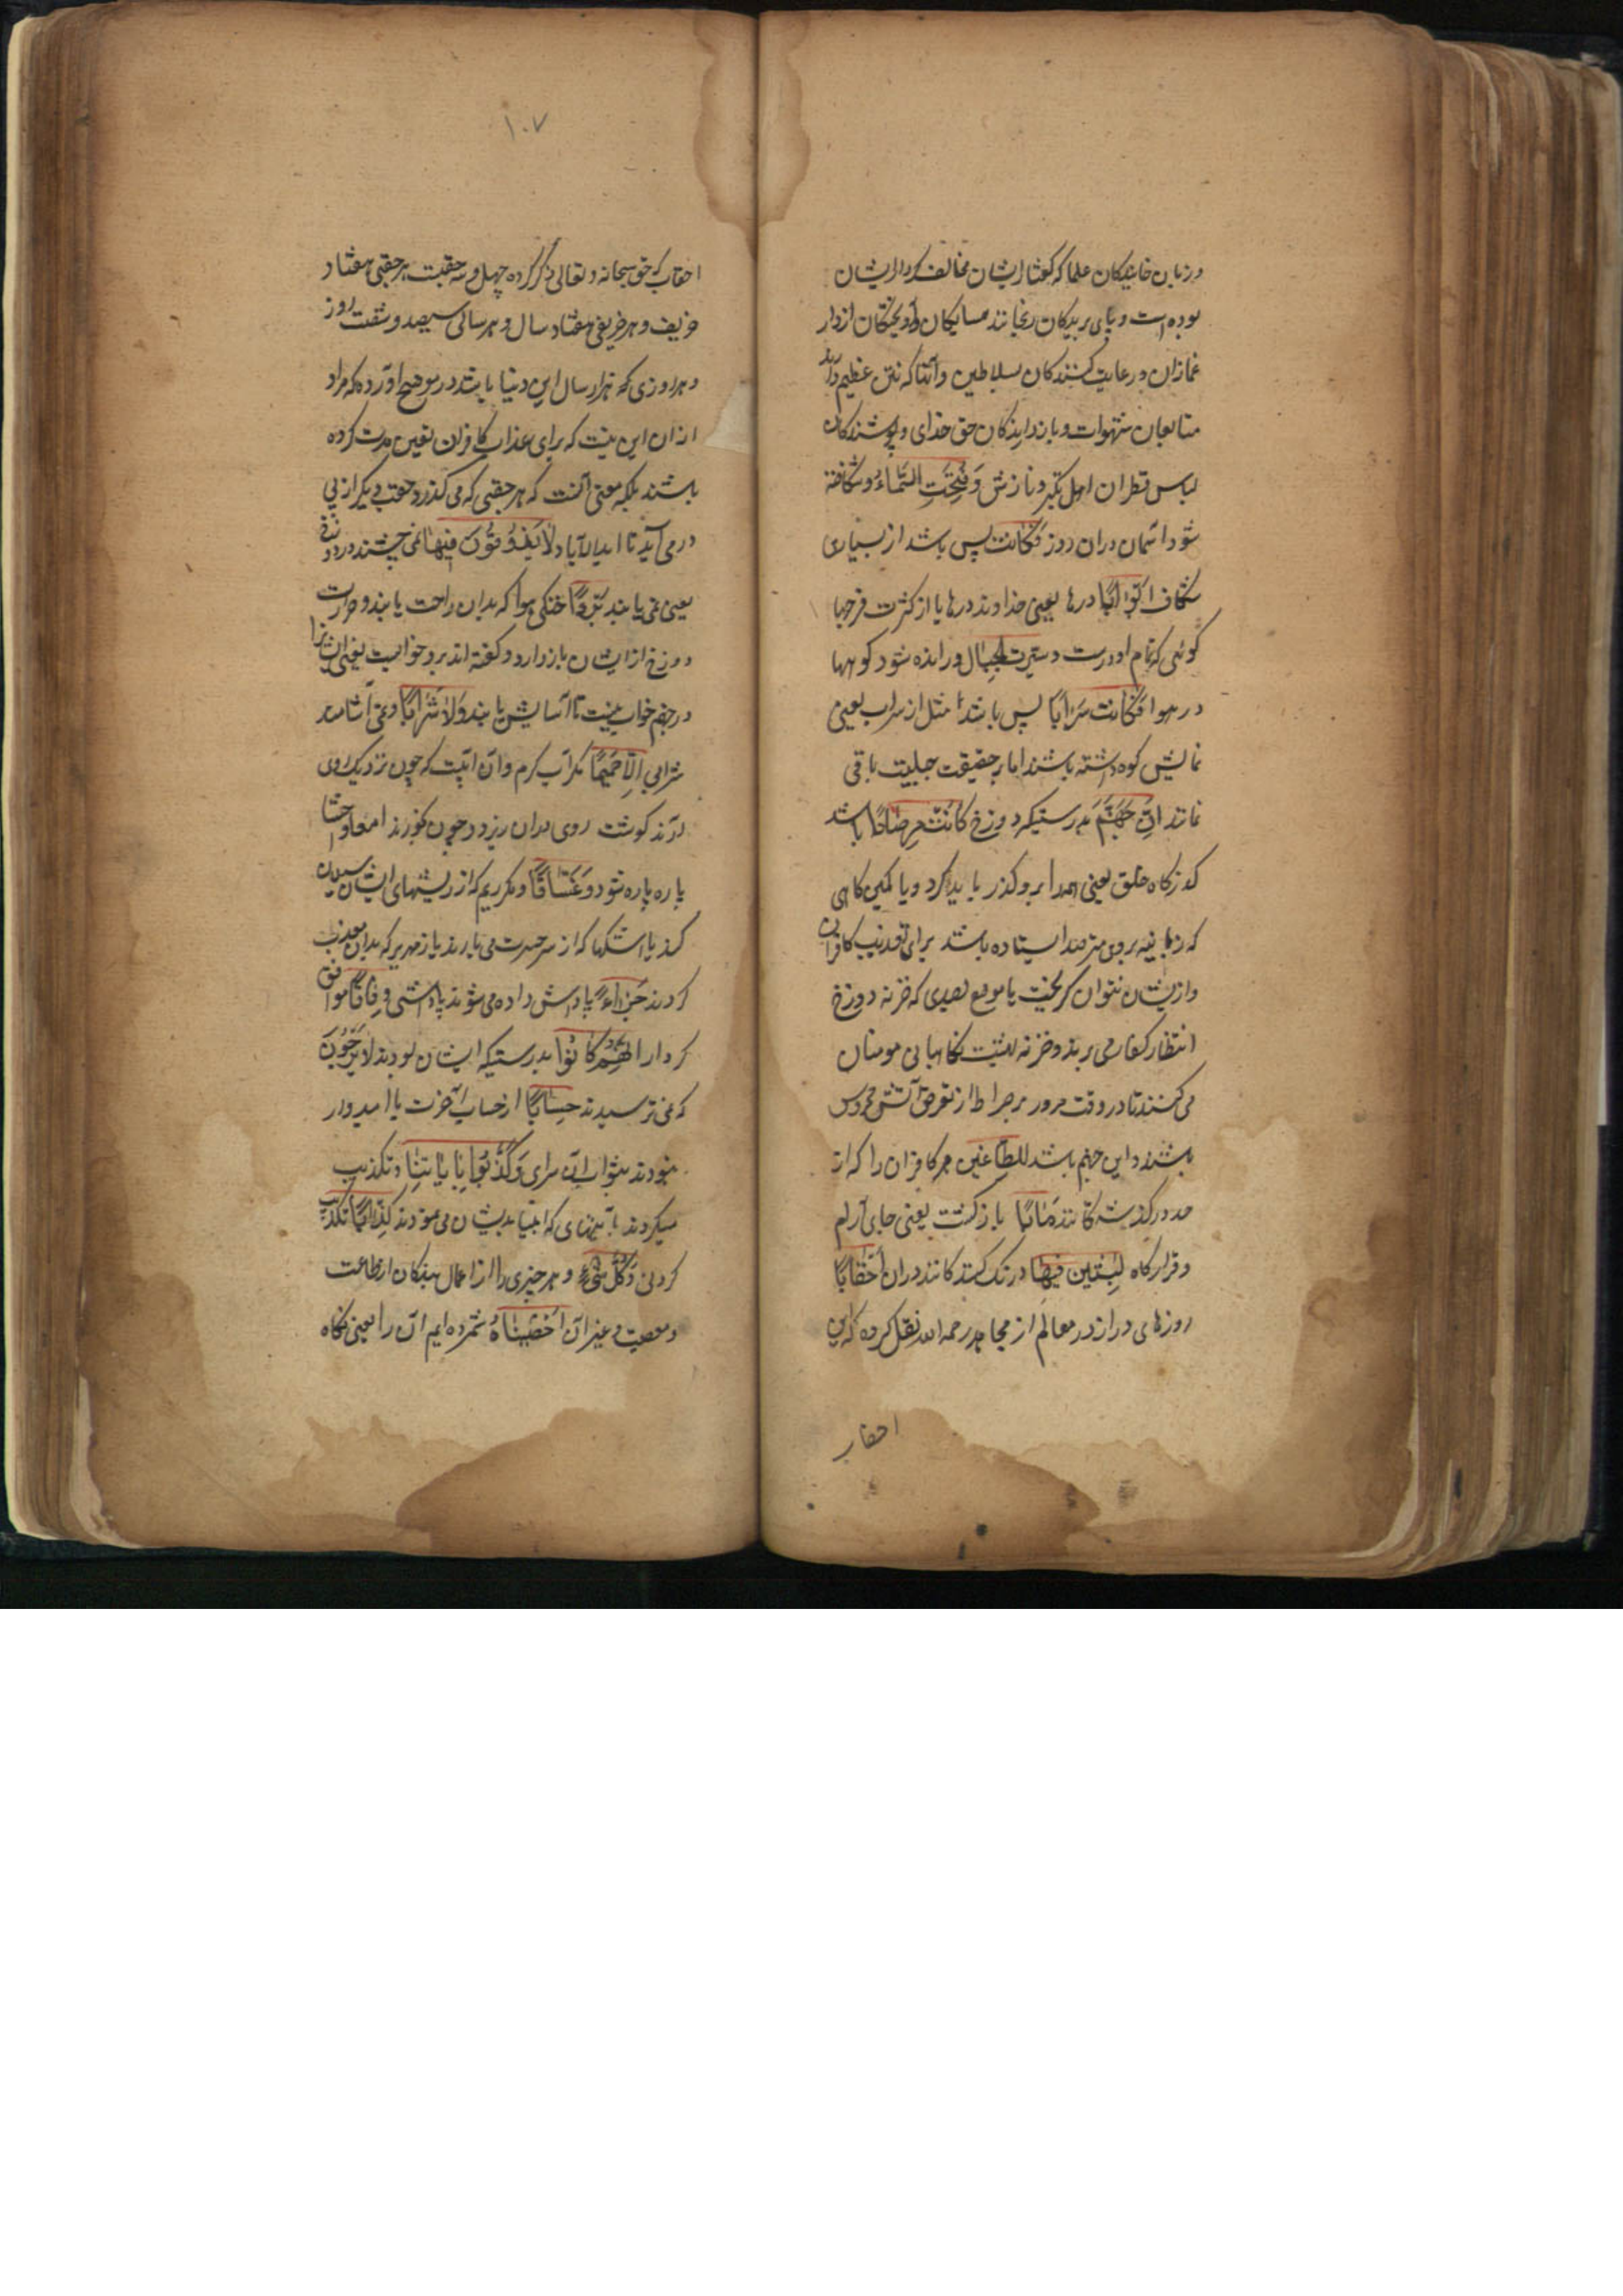 وزبان خایندکان علما که گفتار ایشان مخالف کردار ایشان
بوده است و پای بریدکان رنجانند همسایکان و آویختکان از دار
غمازان و رعایت کنندکان بسلاطین و آنها که نتن عظیم دارند
متابعان شهوات و باز دارندکان حق خدای و پوشندکان
لباس قطران اهل تکبر و نازش وَفُتِحَتِ السَّمَاءُ و شکافته
شود آسمان دران روز فَكَانَت پس باشد از بسیاری
شکاف اَبْوَابًا درها یعنی خداوند درها یا از کثرت فرجها
کوئی که تمام او درست و سیرت الجبال و رانده شود کوهها
در هوا فَكَانَت سَرَابًا پس باشد مثل از سراب یعنی
نمایش کوه داشته باشند اما بر حقیقت جبلیت باقی
نمانند اِنَّ جَهَنَّمَ بدرستیکه دوزخ كَانَتْ مِرْصَادًا باشد
کذرکاه خلق یعنی همه را برو کذر باید کرد و یا کمین کاهی
که زبانیه بروی مترصد ایستاده باشند برای تعذیب کافران
وازیشان نتوان کریخت یا موضع رصدی که خزنه دوزخ
انتظار کفار می برند و خزنه بهشت نکاهبانی مومنان
می کنند تا در وقت مرور بر صراط از تعرض آتش محروس
باشند و این جهنم باشد للطَّاغِين مر کافران را که از
حد در کذشته کانند مَاٰبًا باز کشت یعنی جای آرام
و قرارکاه لٰبِثِينَ فِيهَا درنک کنند کانند دران اَحْقَابًا
روزهای دراز در معالم از مجاهد رحمه الله نقل کرده که این
احقاب
۱۰۷
احقاب که حق سبحانه و تعالی ذکر کرده چهل و سه حقبت هر حقبی هفتاد
خریف و هر خریفی هفتاد سال و هر سالی سیصد و شصت روز
و هر روزی که هزار سال این دنیا باشد در موضح آورده که مراد
از ان این نیست که برای عذاب کافران تعین مدت کرده
باشند بلکه معنی آنست که هر حقبی که می کذرد حقب دیکر از پی
در می آید تا ابد الاباد لَا يَذُوقُونَ فِيهَا نمی چشند در دوزخ
یعنی نمی یابند بَرْدًا خنکی هوا که بدان راحت یابند و حرارت
دوزخ از ایشان باز دارد و کفته اند برد خوابست یعنی ایشانرا
در جهنم خواب نیست تا آسایش یابند وَلَا شَرَابًا و نمی آشامند
شرابی اِلَّا حَمِيمًا مکر آب کرم و آن آبیست که چون نزدیک روی
آرند کوشت روی دران ریزد و چون بخورند امعا و احشا
پاره پاره شود وَغَسَّاقًا و مکر ریم که از ریشهای ایشان سیلان
کند یا اشکها که از سر حسرت می بارند یا زمهریر که بدان معذب
کردند جَزَاءً پاداش داده می شوند پاداشی وِفَاقًا موافق
کردار اِنَّهُمْ كَانُوا بدرستیکه ایشان بودند لَا يَرْجُونَ
که نمی ترسیدند حِسَابًا از حساب آخرت یا امیدوار
نبودند بثواب آن سرای وَكَذَّبُوا بِاٰيَاتِنَا و تکذیب
میکردند بآیتهای که انبیا بدیشان می نمودند كِذَّابًا تکذیب
کردنی وَكُلَّ شَيْءٍ و هر چیزی را از اعمال بندکان از طاعت
و معصیت و غیر آن اَحْصَيْنَاهُ شمرده ایم آن را یعنی نکاه